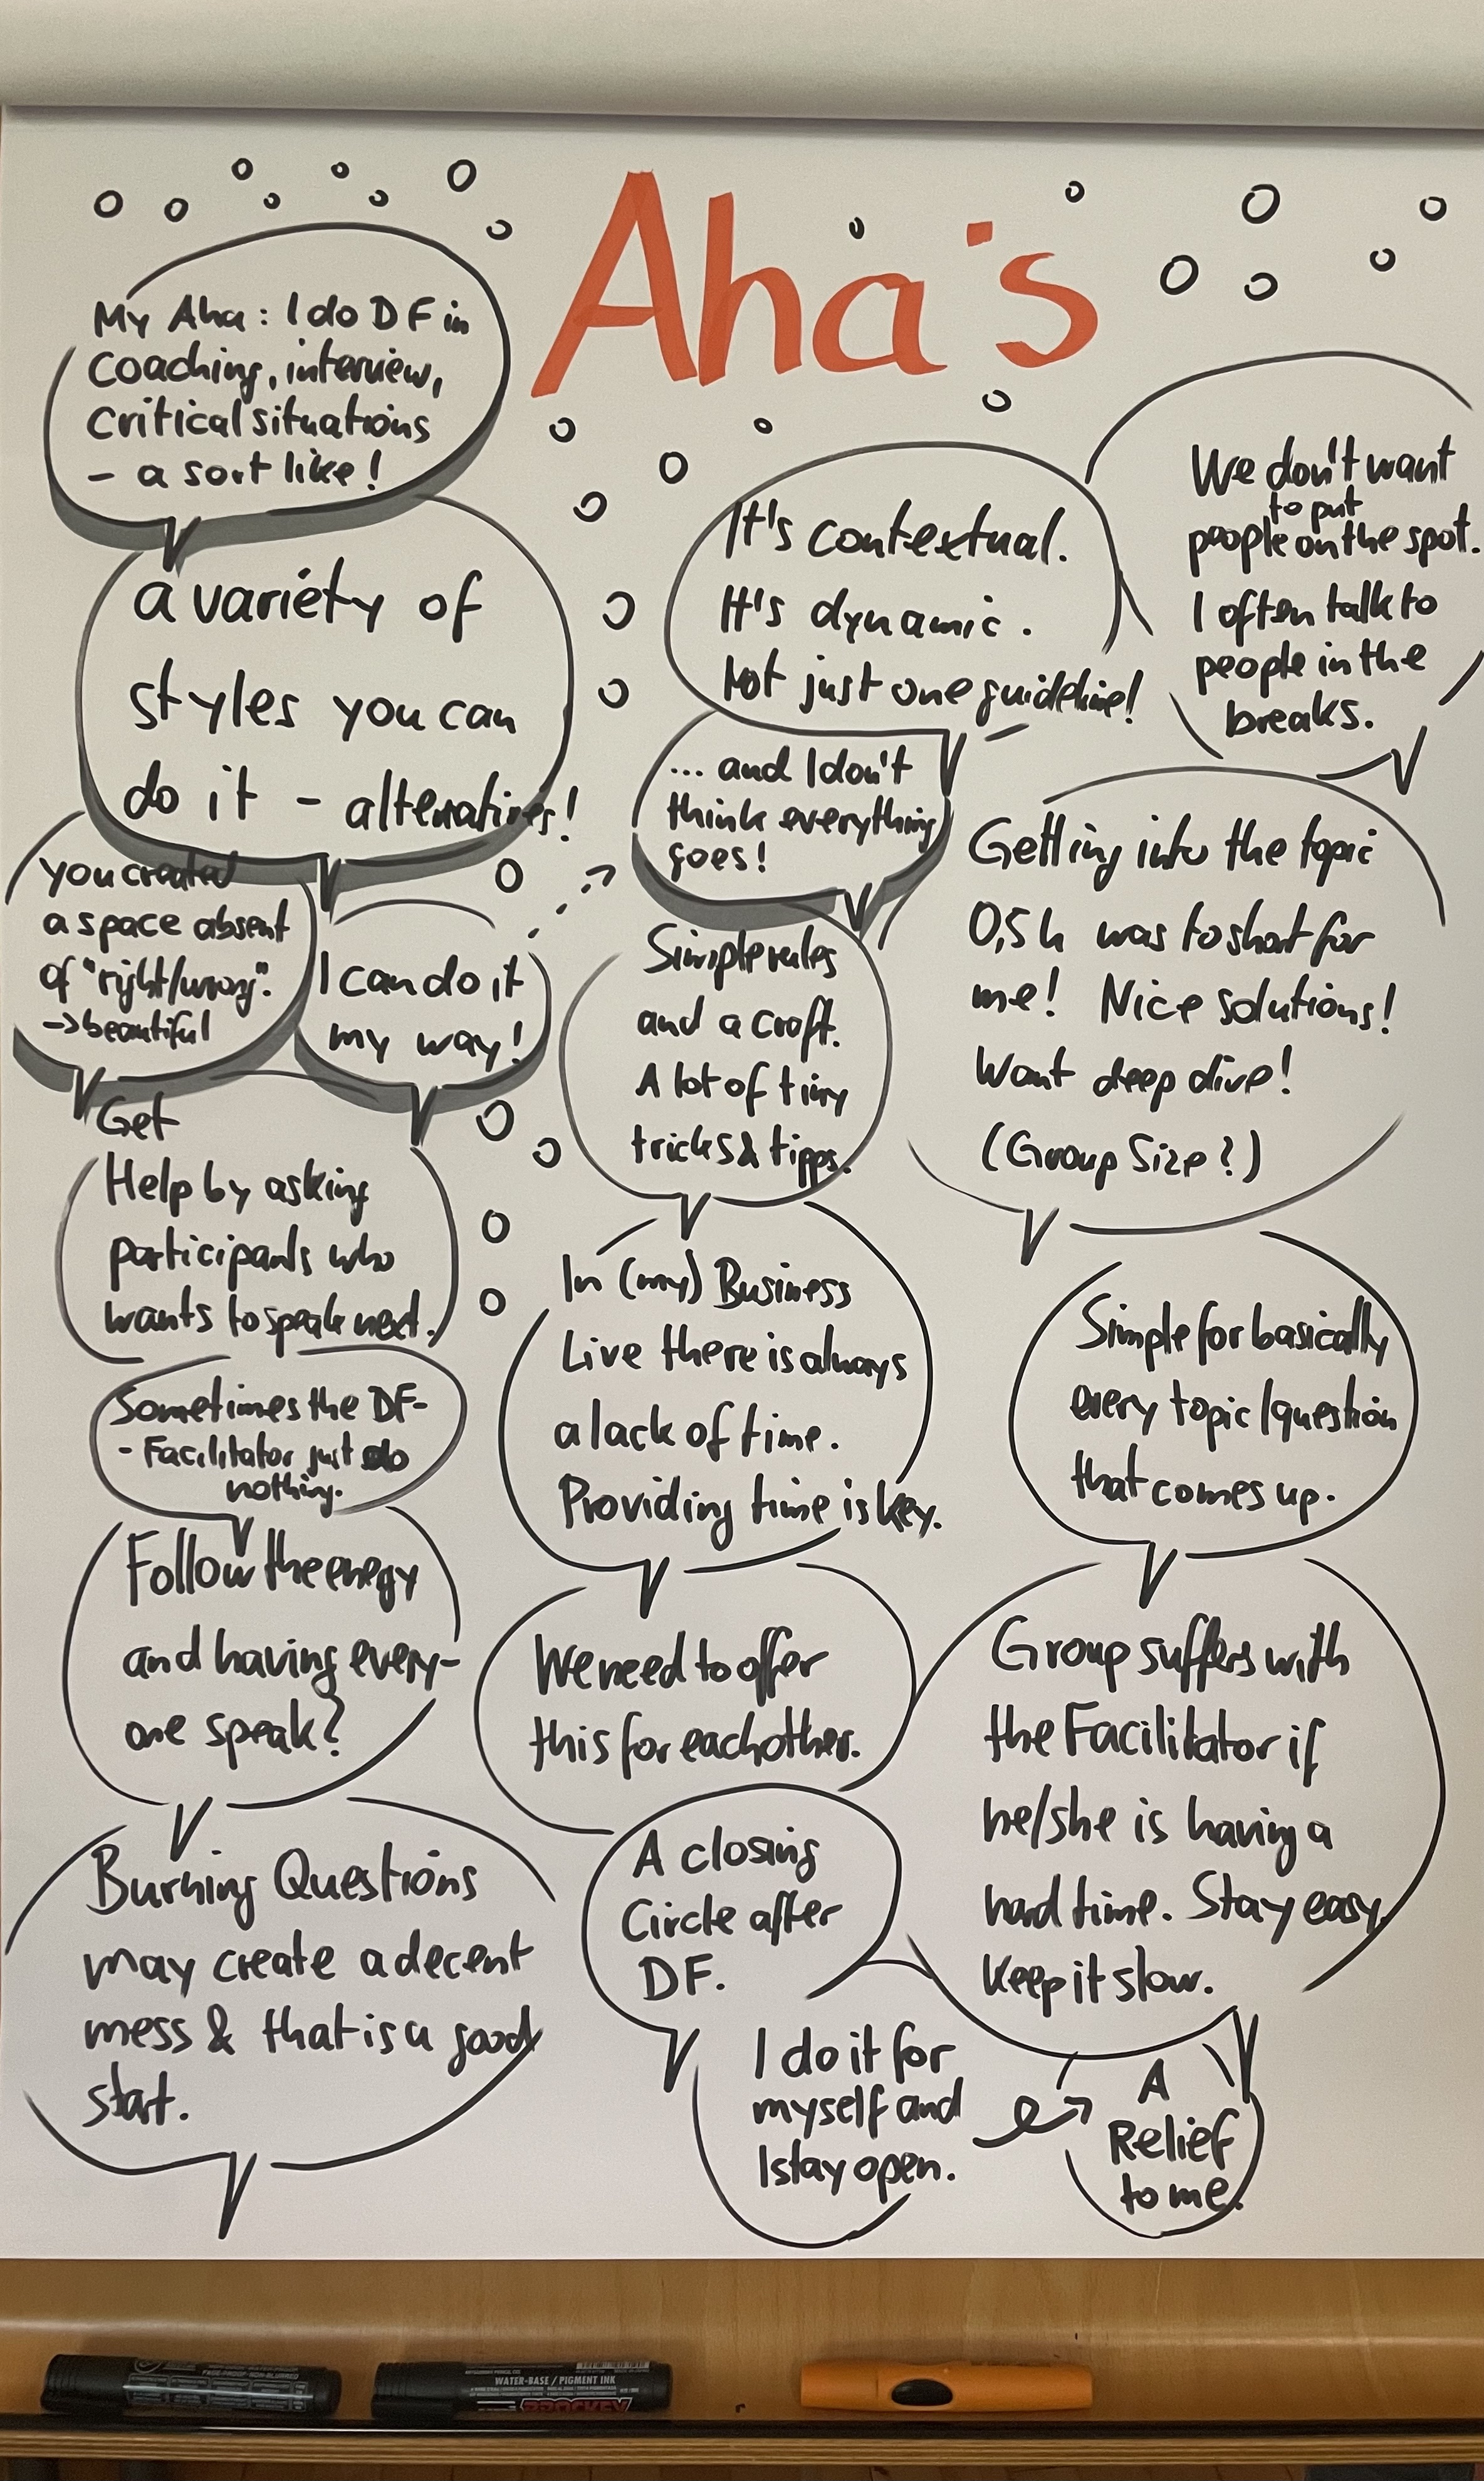 Aha's
My Aha: I do DF in
Coaching, interview,
Critical situations
- a sort like!
a variety of
styles you can
do it - alternatives!
you created
a space absent
of "right/wrong".
->beautiful
I can do it
my way!
Get
Help by asking
participants who
wants to speak next.
Sometimes the DF-
- Facilitator just do
nothing.
Follow the energy
and having every-
one speak?
Burning Questions
may create a decent
mess & that is a good
start.
It's contextual.
It's dynamic.
Not just one guideline!
... and I don't
think everything
goes!
Simple rules
and a craft.
A lot of tiny
tricks & tipps.
In (my) Business
Live there is always
a lack of time.
Providing time is key.
We need to offer
this for eachother.
A closing
Circle after
DF.
I do it for
myself and
I stay open.
We don't want
to put
people on the spot.
I often talk to
people in the
breaks.
Getting into the topic
0,5 h was to short for
me! Nice solutions!
Want deep dive!
(Group Size?)
Simple for basically
every topic/question
that comes up.
Group suffers with
the Facilitator if
he/she is having a
hard time. Stay easy,
Keep it slow.
A
Relief
to me.
WATER-BASE / PIGMENT INK